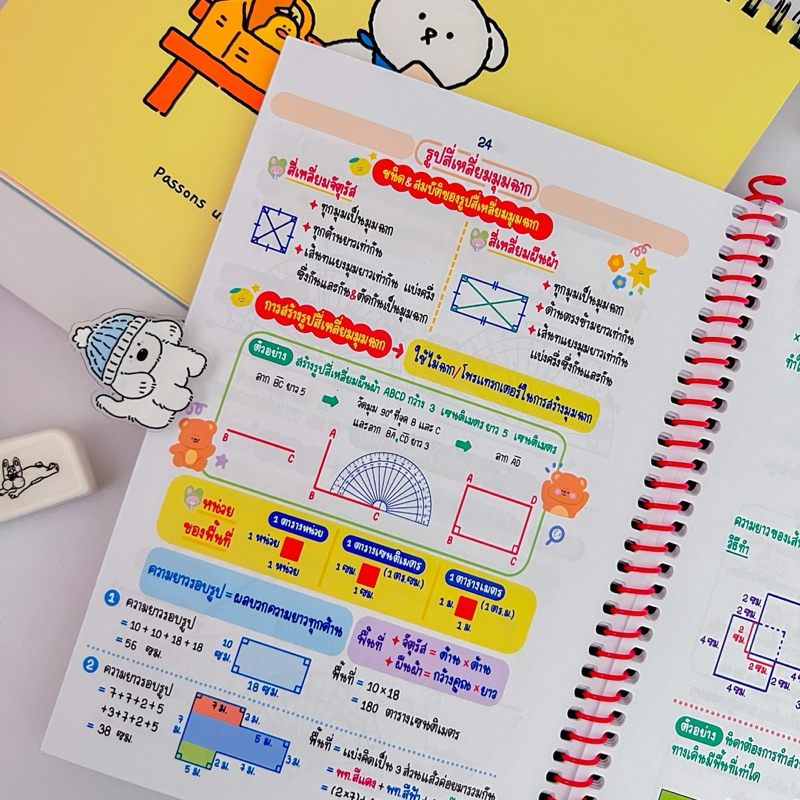 Passons u
24
รูปสี่เหลี่ยมมุมฉาก
ชนิด & สมบัติของรูปสี่เหลี่ยมมุมฉาก
สี่เหลี่ยมจัตุรัส
ทุกมุมเป็นมุมฉาก
ทุกด้านยาวเท่ากัน
เส้นทแยงมุมยาวเท่ากัน แบ่งครึ่ง
ซึ่งกันและกัน&ตัดกันเป็นมุมฉาก
สี่เหลี่ยมผืนผ้า
ทุกมุมเป็นมุมฉาก
ด้านตรงข้ามยาวเท่ากัน
เส้นทแยงมุมยาวเท่ากัน
แบ่งครึ่งซึ่งกันและกัน
การสร้างรูปสี่เหลี่ยมมุมฉาก
ใช้ไม้ฉาก/โพรแทรกเตอร์ในการสร้างมุมฉาก
ตัวอย่าง สร้างรูปสี่เหลี่ยมผืนผ้า ABCD กว้าง 3 เซนติเมตร ยาว 5 เซนติเมตร
ลาก BC ยาว 5
วัดมุม 90° ที่จุด B และ C
และลาก BA, CD ยาว 3
ลาก AD
B C
A B C
A D B C
หน่วย
ของพื้นที่
1 ตารางหน่วย
1 หน่วย
1 หน่วย
1 ตารางเซนติเมตร
1 ซม. (1 ตร.ซม)
1 ซม.
1 ตารางเมตร
1 ม. (1 ตร.ม.)
1 ม.
ความยาวรอบรูป = ผลบวกความยาวทุกด้าน
พื้นที่
จัตุรัส = ด้าน × ด้าน
ผืนผ้า = กว้างคูณ × ยาว
1 ความยาวรอบรูป
= 10 + 10 + 18 + 18
= 56 ซม.
10
ซม.
18 ซม.
พื้นที่ = 10 × 18
= 180 ตารางเซนติเมตร
2 ความยาวรอบรูป
= 7+7+2+5
+3+7+2+5
= 38 ซม.
7 ม.
2 ม.
7
ม.
5 ม.
3 ม.
2 ม.
7 ม.
5 ม.
พื้นที่ = แบ่งคิดเป็น 3 ส่วนแล้วค่อยมารวมกัน
= พท.สีแดง + พท.สีฟ้า
= (2×7)
ความยาวของเส้
วิธีทำ
2 ซม.
2 ซม.
2
ซม.
4 ซม.
2 ซม.
4 ซม.
ตัวอย่าง นิดาต้องการทำสว
ทางเดินมีพื้นที่เท่าใด